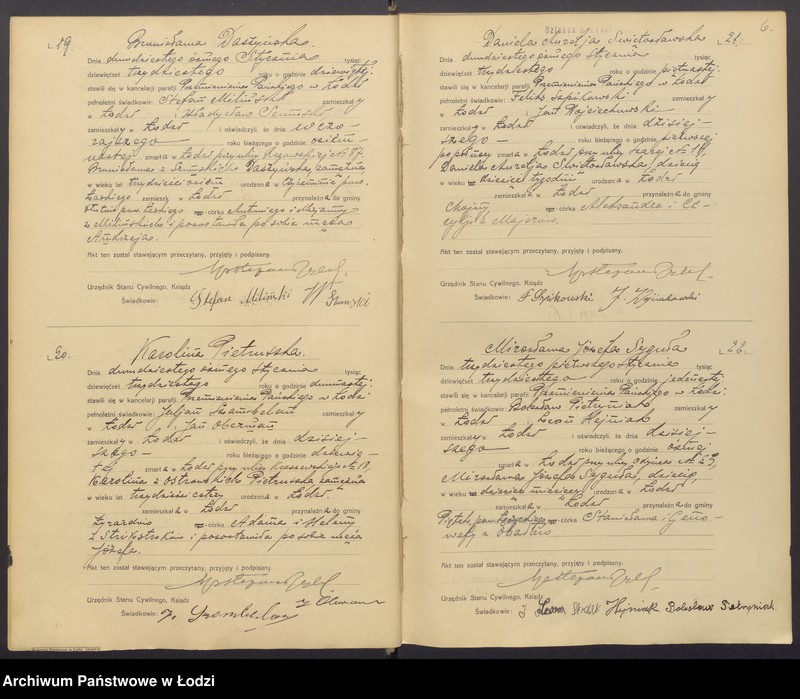 19.
Bronisława Daszyńska.
Dnia dwudziestego ósmego Stycznia tysiąc
dziewięćset trzydziestego roku o godzinie dziewiątej
stawili się w kancelarji parafji Przemienienia Pańskiego w Łodzi
pełnoletni świadkowie: Stefan Miliński zamieszkały
w Łodzi i Władysław
zamieszkały w Łodzi i oświadczyli, że dnia wczo-
rajszego roku bieżącego o godzinie ósem-
nastej zmarła w Łodzi przy ulicy
Bronisława z Daszyńska zamężna
w wieku lat trzydzieści osiem urodzona w pow.
Łaskiego zamieszk. w Łodzi przynależna do gminy
pow. Łaskiego córka Antoniego i Marjanny
z Milińskich i pozostawiła po sobie męża
Andrzeja.
Akt ten został stawającym przeczytany, przyjęty i podpisany.
Urzędnik Stanu Cywilnego, Ksiądz
Świadkowie: Stefan Miliński W
20.
Karolina Pietruszka.
Dnia dwudziestego ósmego stycznia tysiąc
dziewięćset trzydziestego roku o godzinie dwunastej
stawili się w kancelarji parafji Przemienienia Pańskiego w Łodzi
pełnoletni świadkowie: Juljan Szambelan zamieszkały
w Łodzi i Jan Oberman
zamieszkały w Łodzi i oświadczyli, że dnia dzisiej-
szego - roku bieżącego o godzinie dziewią-
tej zmarła w Łodzi przy ulicy No 18,
Karolina z Ostrowskich Pietruszka zamężna
w wieku lat trzydzieści cztery urodzona w Łodzi
zamieszkała w Łodzi przynależna do gminy
córka Adama i Heleny
z i pozostawiła po sobie męża
Józefa.
Akt ten został stawającym przeczytany, przyjęty i podpisany.
Urzędnik Stanu Cywilnego, Ksiądz
Świadkowie:
6.
21.
Daniela Aurelja Świętosławska
Dnia dwudziestego ósmego stycznia tysiąc
dziewięćset trzydziestego roku o godzinie piętnastej
stawili się w kancelarji parafji Przemienienia Pańskiego w Łodzi
pełnoletni świadkowie: Feliks zamieszkały
w Łodzi i Jan Wojciechowski -
zamieszkały w Łodzi i oświadczyli, że dnia dzisiej-
szego - roku bieżącego o godzinie pierwszej
po północy zmarła w Łodzi przy ulicy Szarej No
Daniela Aurelja Świętosławska, dziecię
w wieku dziesięć tygodni urodzona w Łodzi
zamieszkała w Łodzi przynależna do gminy
Chojny córka Aleksandra i Ce-
cylji z Majerów.
Akt ten został stawającym przeczytany, przyjęty i podpisany.
Urzędnik Stanu Cywilnego, Ksiądz
Świadkowie:
22.
Mirosława Józefa Syguła
Dnia trzydziestego pierwszego stycznia tysiąc
dziewięćset trzydziestego - roku o godzinie jedenastej
stawili się w kancelarji parafji Przemienienia Pańskiego w Łodzi
pełnoletni świadkowie: Bolesław Pietryniak zamieszkały
w Łodzi i Leon Hejniak
zamieszkały w Łodzi i oświadczyli, że dnia dzisiej-
szego - roku bieżącego o godzinie ósmej
zmarła w Łodzi przy ulicy No 25,
Mirosława Józefa Syguła, dziecię,
w wieku dziesięć miesięcy urodzona w Łodzi
zamieszkała w Łodzi przynależna do gminy
Piątek pow. Łęczyckiego córka Stanisława i Geno-
wefy z
Akt ten został stawającym przeczytany, przyjęty i podpisany.
Urzędnik Stanu Cywilnego, Ksiądz
Świadkowie: Hejniak Bolesław Pietryniak
Archiwum Państwowe w Łodzi